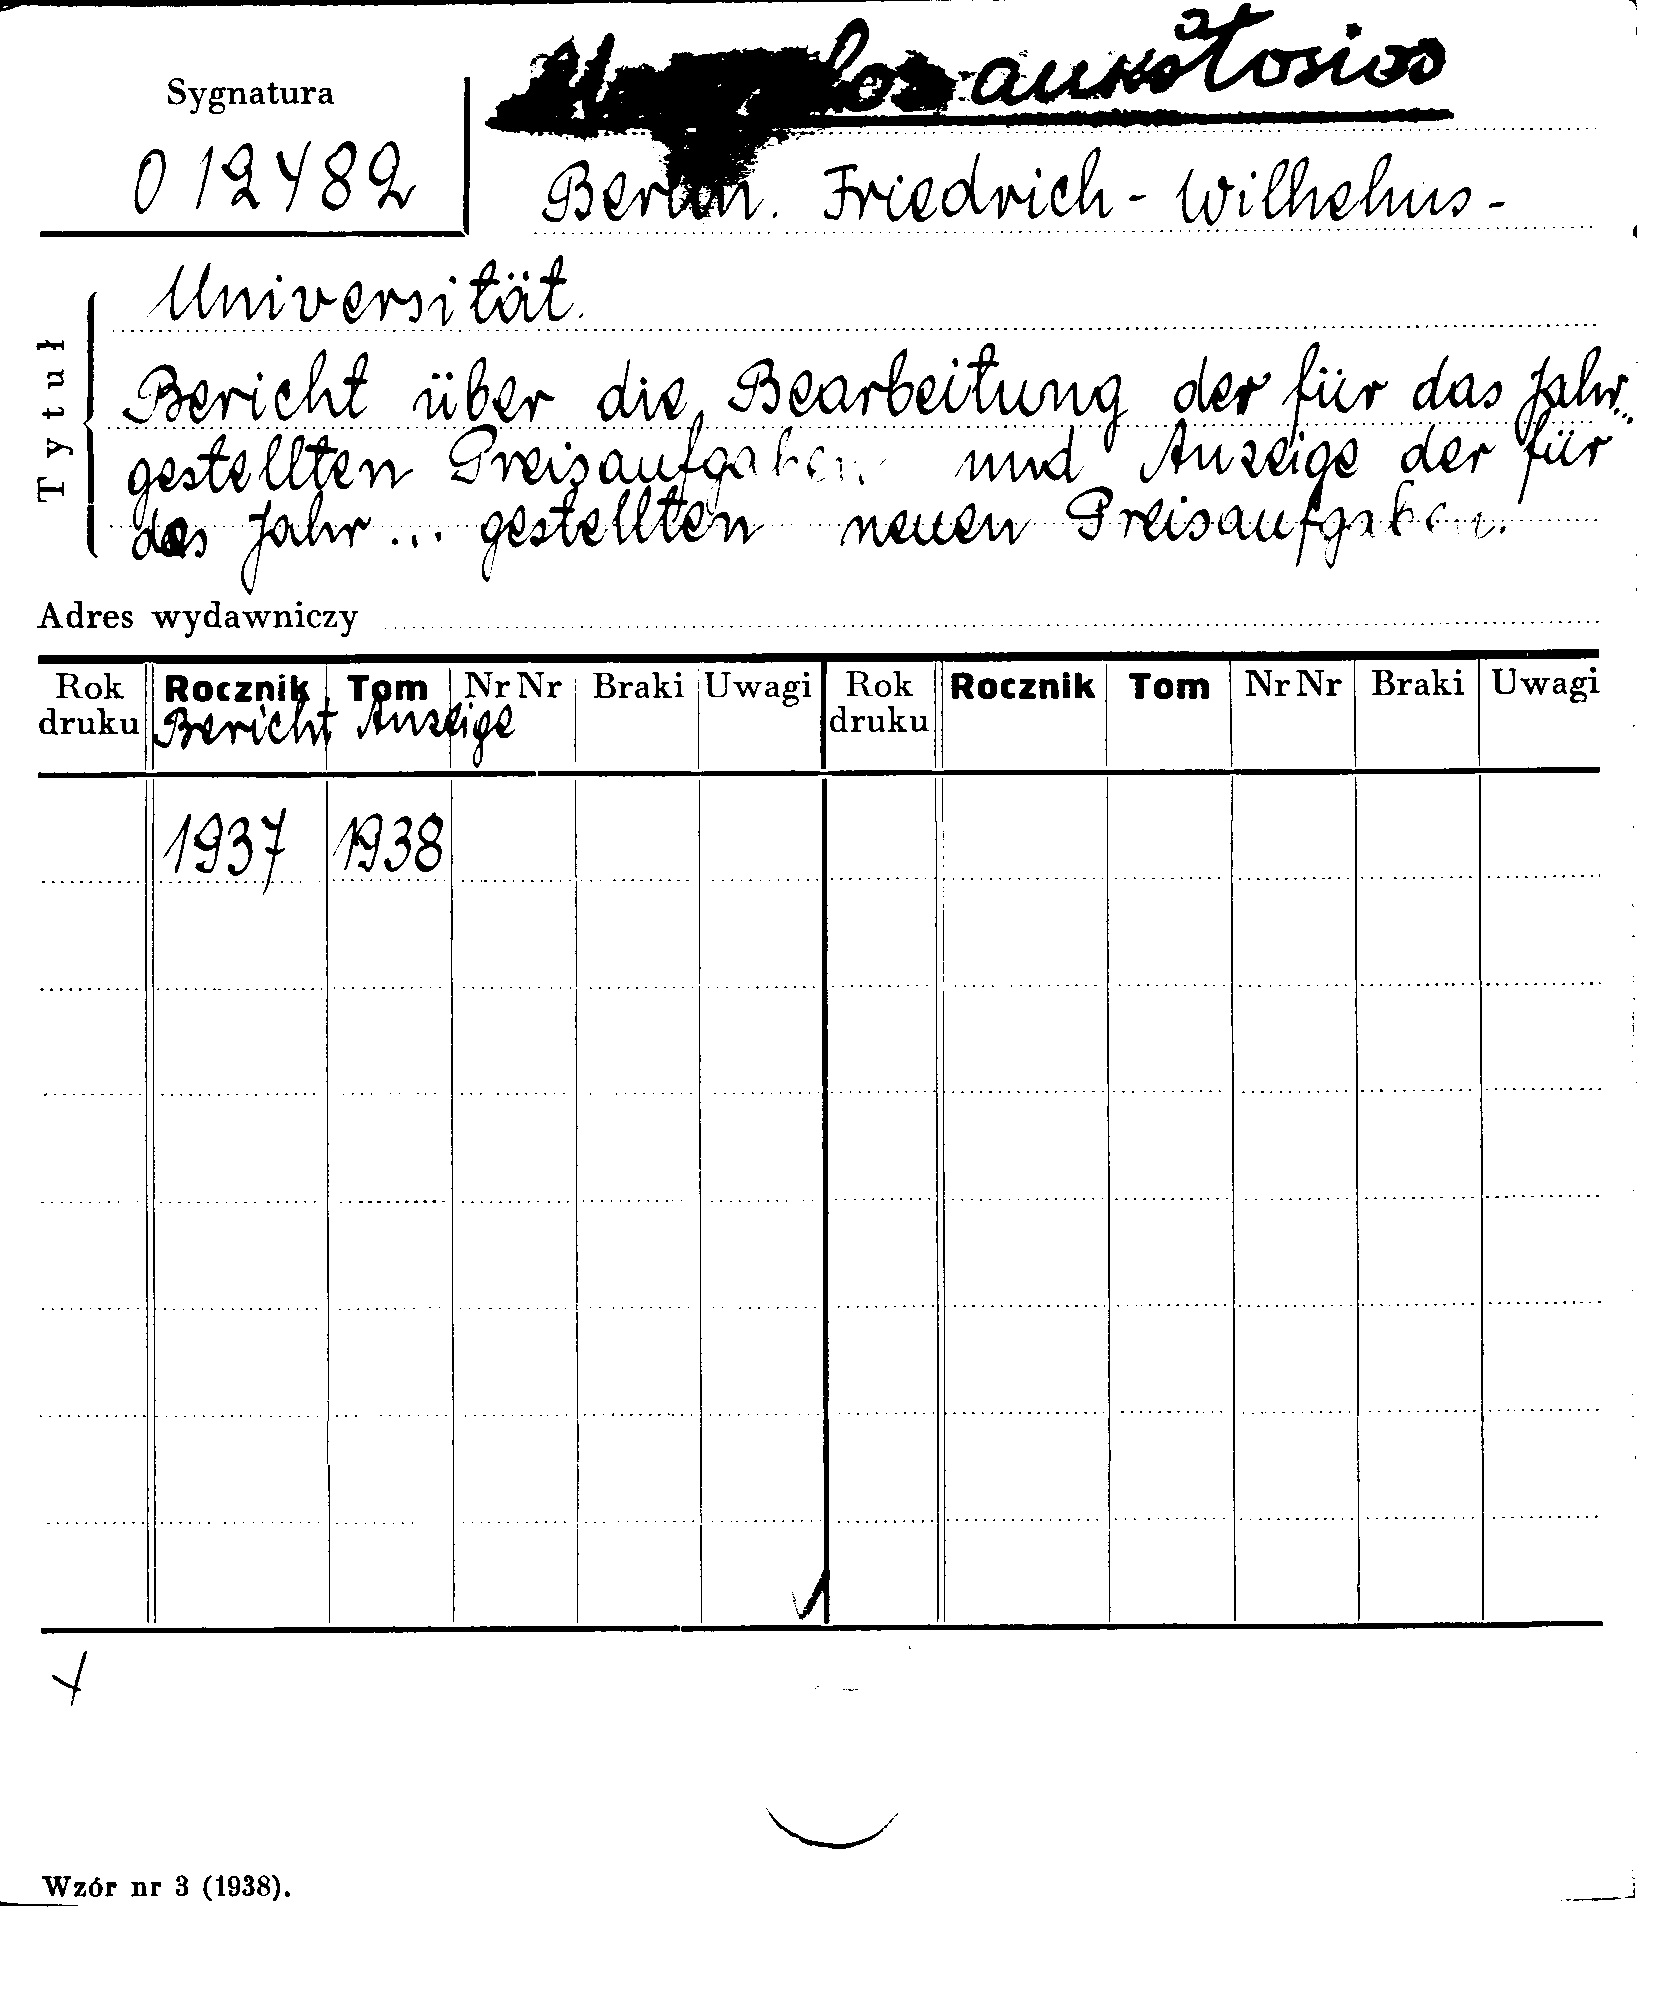 Sygnatura
012482
Berlin. Friedrich-Wilhelms-
Tytuł
Universität.
Bericht über die Bearbeitung der für das Jahr...
gestellten Preisaufgaben und Anzeige der für
das Jahr ... gestellten neuen Preisaufgaben.
Adres wydawniczy
Rok druku Rocznik Tom Nr Nr Braki Uwagi Rok druku Rocznik Tom Nr Nr Braki Uwagi
Bericht Anzeige
1937 1938
Wzór nr 3 (1938).